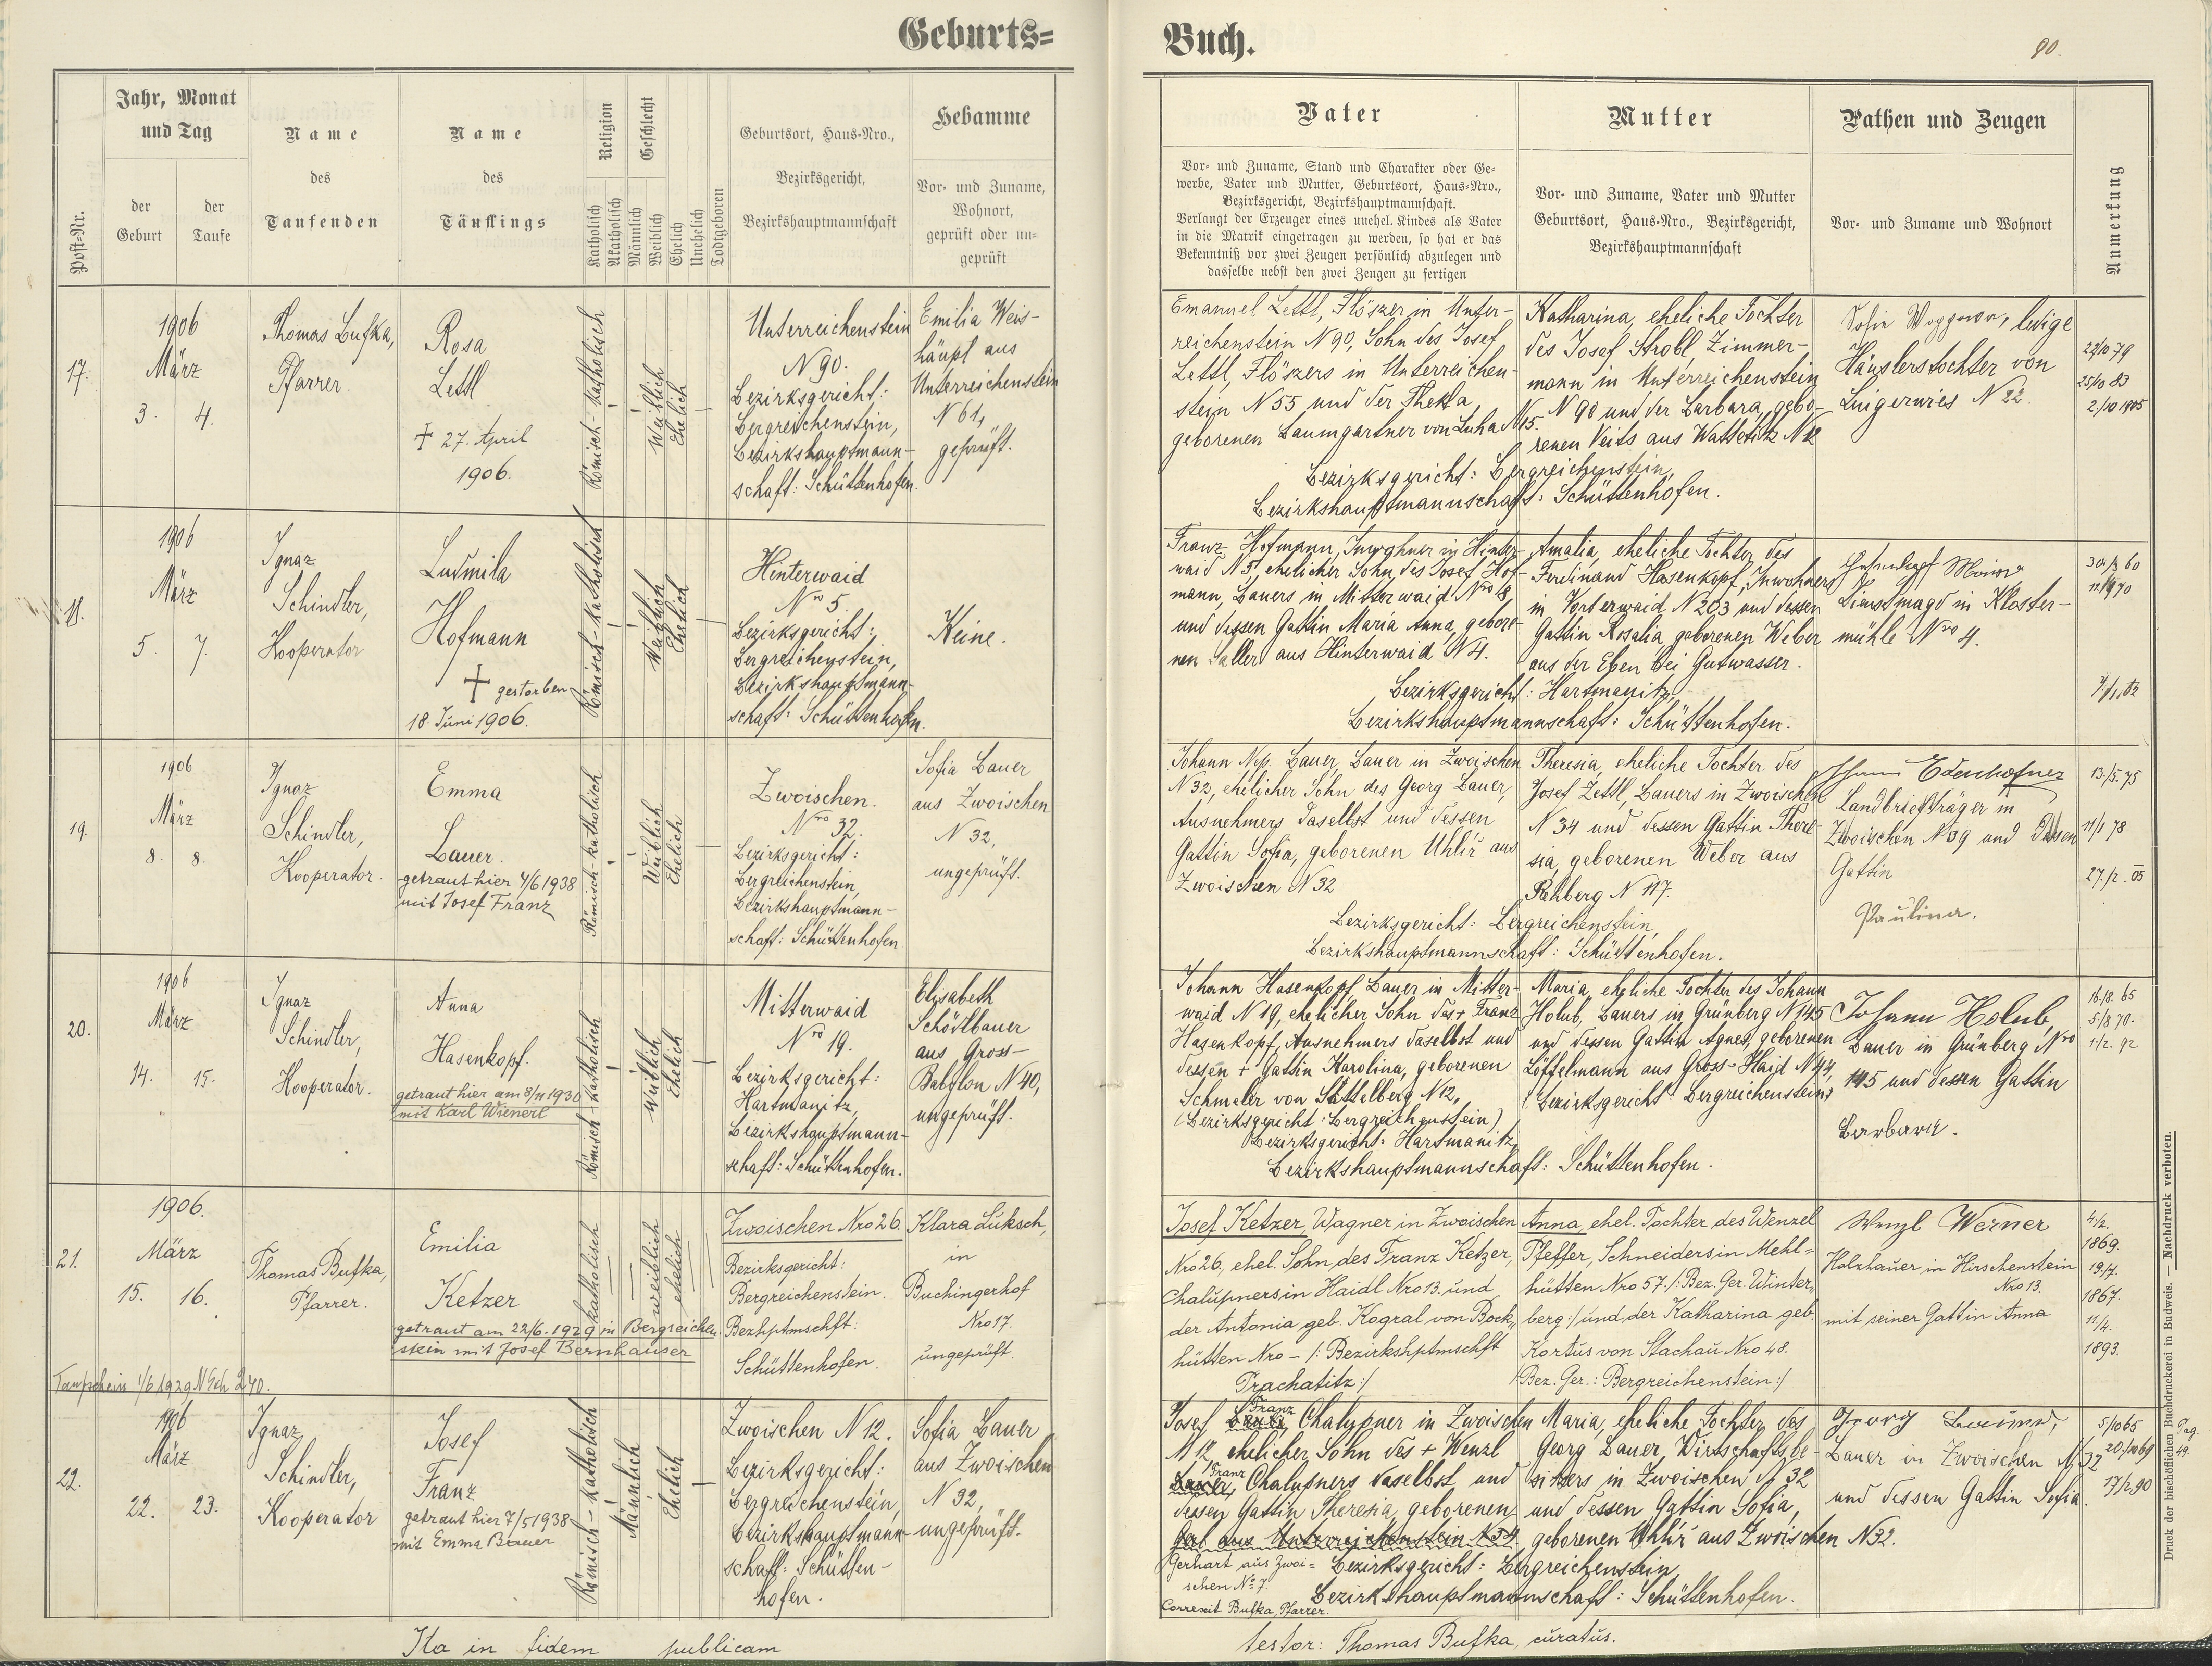 Geburts=
Buch.
90.
Post-Nr.
Jahr, Monat
und Tag
der
Geburt
der
Taufe
Name
des
Taufenden
Name
des
Täuflings
Religion
Katholisch
Akatholisch
Geschlecht
Männlich
Weiblich
Ehelich
Unehelich
Todtgeboren
Geburtsort, Haus-Nro.,
Bezirksgericht,
Bezirkshauptmannschaft
Hebamme
Vor- und Zuname,
Wohnort,
geprüft oder un-
geprüft
Vater
Vor- und Zuname, Stand und Charakter oder Ge-
werbe, Vater und Mutter, Geburtsort, Haus-Nro.,
Bezirksgericht, Bezirkshauptmannschaft.
Verlangt der Erzeuger eines unehel. Kindes als Vater
in die Matrik eingetragen zu werden, so hat er das
Bekenntniß vor zwei Zeugen persönlich abzulegen und
dasselbe nebst den zwei Zeugen zu fertigen
Mutter
Vor- und Zuname, Vater und Mutter
Geburtsort, Haus-Nro., Bezirksgericht,
Bezirkshauptmannschaft
Pathen und Zeugen
Vor- und Zuname und Wohnort
Anmerkung
17.
1906
März
3. 4.
Thomas Bufka,
Pfarrer.
Rosa
Lettl
+ 27. April
1906.
Römisch-katholisch
Weiblich
Ehelich
Unterreichenstein
N 90.
Bezirksgericht:
Bergreichenstein,
Bezirkshauptmann-
schaft: Schüttenhofen.
Emilia Weis-
häupl aus
Unterreichenstein
N 61,
geprüft.
Emanuel Lettl, Flöszer in Unter-
reichenstein N 90, Sohn des Josef
Lettl, Flöszers in Unterreichen-
stein N 55 und der Thekla
geborenen Baumgartner von Luha N 15.
Katharina, eheliche Tochter
des Josef Strobl, Zimmer-
mann in Unterreichenstein
N 90 und der Barbara, gebo-
renen Veits aus Watetitz N 12
Bezirksgericht: Bergreichenstein,
Bezirkshauptmannschaft: Schüttenhofen.
ledige
Häuslerstochter von
Lingerwies N 22.
22/10 79
25/10 83
2/10 1905
18.
1906
März
5. 7.
Ignaz
Schindler,
Kooperator
Ludmila
Hofmann
+ gestorben
18. Juni 1906.
Römisch-katholisch
Weiblich
Ehelich
Hinterwaid
Nro 5.
Bezirksgericht:
Bergreichenstein,
Bezirkshauptmann-
schaft: Schüttenhofen.
Keine.
Franz Hofmann, Inwohner in Hinter-
waid N 5, ehelicher Sohn des Josef Hof-
mann, Bauers in Mitterwaid Nro 8,
und dessen Gattin Maria Anna, gebore-
nen Saller aus Hinterwaid N 4.
Amalia, eheliche Tochter des
Ferdinand Hasenkopf, Inwohners
in Vorderwaid N 203 und dessen
Gattin Rosalia, geborenen Weber
aus der Eben bei Gutwasser.
Bezirksgericht: Hartmanitz,
Bezirkshauptmannschaft: Schüttenhofen.
Dienstmagd in Kloster-
mühle Nro 4.
19.
1906
März
8. 8.
Ignaz
Schindler,
Kooperator.
Emma
Bauer.
getraut hier 4/6 1938
mit Josef Franz
Römisch-katholisch
Weiblich
Ehelich
Zwoischen.
Nro 32.
Bezirksgericht:
Bergreichenstein,
Bezirkshauptmann-
schaft: Schüttenhofen.
Sofia Bauer
aus Zwoischen
N 32,
ungeprüft.
Johann Nep. Bauer, Bauer in Zwoischen
N 32, ehelicher Sohn des Georg Bauer,
Ausnehmers daselbst und dessen
Gattin Sofia, geborenen Uhlíř aus
Zwoischen N 32
Theresia, eheliche Tochter des
Josef Zettl, Bauers in Zwoischen
N 34 und dessen Gattin There-
sia, geborenen Weber aus
Rehberg N 117.
Bezirksgericht: Bergreichenstein,
Bezirkshauptmannschaft: Schüttenhofen.
Johann Edenhofner
Landbriefträger in
Zwoischen N 39 und dessen
Gattin
Paulina.
13/5. 75
11/1 78
27./2. 05
20.
1906
März
14. 15.
Ignaz
Schindler,
Kooperator.
Anna
Hasenkopf.
getraut hier am 8/11 1930
mit Karl Wienerl
Römisch-katholisch
Weiblich
Ehelich
Mitterwaid
Nro 19.
Bezirksgericht:
Hartmanitz,
Bezirkshauptmann-
schaft: Schüttenhofen.
Elisabeth
Schöstlbauer
aus Gross-
Babylon N 40,
ungeprüft.
Johann Hasenkopf, Bauer in Mitter-
waid N 19, ehelicher Sohn des + Franz
Hasenkopf, Ausnehmers daselbst und
dessen + Gattin Karolina, geborenen
Schmeler von Sattelberg N 12,
(Bezirksgericht: Bergreichenstein)
Maria, eheliche Tochter des Johann
Holub, Bauers in Grünberg N 145
und dessen Gattin Agnes, geborenen
Löffelmann aus Gross-Haid N 44,
(Bezirksgericht: Bergreichenstein)
Bezirksgericht: Hartmanitz,
Bezirkshauptmannschaft: Schüttenhofen.
Johann Holub,
Bauer in Grünberg Nro
145 und dessen Gattin
Barbara.
16/8. 65
5/8 70.
1/2. 92
21.
1906.
März
15. 16.
Thomas Bufka,
Pfarrer.
Emilia
Ketzer
getraut am 22/6. 1929 in Bergreichen-
stein mit Josef Bernhauser
Taufschein 1/6 1929 N Gsch 270.
katholisch
weiblich
ehelich
Zwoischen Nro 26.
Bezirksgericht:
Bergreichenstein.
Bezhptmschft:
Schüttenhofen.
Klara Luksch,
in
Buchingerhof
Nro 17.
ungeprüft.
Josef Ketzer, Wagner in Zwoischen
Nro 26, ehel. Sohn des Franz Ketzer,
Chalupners in Haidl Nro 13. und
der Antonia geb. Kogral von Bock-
hütten Nro - /: Bezirkshptmschft
Prachatitz :/
Anna, ehel. Tochter des Wenzel
Pfeffer, Schneiders in Mehl-
hütten Nro 57. /: Bez. Ger. Winter-
berg :/ und der Katharina geb.
Kortus von Stachau Nro 48.
/Bez. Ger.: Bergreichenstein :/
Wenzl Werner
Holzhauer in Hirschenstein
Nro 13.
mit seiner Gattin Anna
4./2.
1869.
19./7.
1867.
11/4.
1893.
22.
1906
März
22. 23.
Ignaz
Schindler,
Kooperator
Josef
Franz
getraut hier 7/5 1938
mit Emma Bauer
Römisch-katholisch
Männlich
Ehelich
Zwoischen N 12.
Bezirksgericht:
Bergreichenstein,
Bezirkshauptmann-
schaft: Schütten-
hofen.
Sofia Bauer
aus Zwoischen
N 32,
ungeprüft.
Josef Franz, Chalupner in Zwoischen
N 12, ehelicher Sohn des + Wenzl
Franz Chalupners daselbst und
dessen Gattin Theresia, geborenen
Gerl aus Unterreichenstein N 34
Gerhart aus Zwoi-
schen No 7.
Correxit Bufka, Pfarrer.
Maria, eheliche Tochter des
Georg Bauer, Wirtschaftsbe-
sitzers in Zwoischen N 32
und dessen Gattin Sofia,
geborenen Uhlíř aus Zwoischen N 32.
Bezirksgericht: Bergreichenstein,
Bezirkshauptmannschaft: Schüttenhofen.
Georg Bauer,
Bauer in Zwoischen N 32
und dessen Gattin Sofia.
5/10 65
17/2 90
Ita in fidem publicam
testor: Thomas Bufka, curatus.
Druck der bischöflichen Buchdruckerei in Budweis. — Nachdruck verboten.